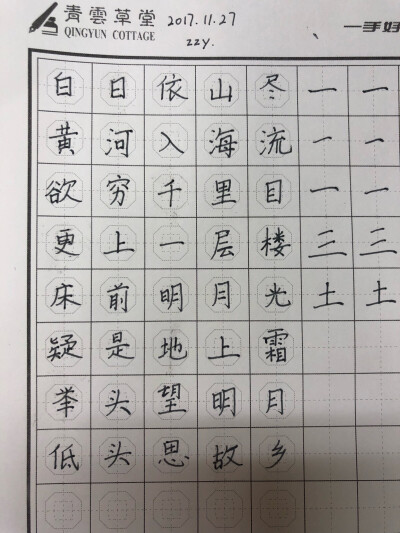 青雲草堂 2017.11.27 一手好
QINGYUN COTTAGE zzy.
白日依山尽一一
黄河入海流一一
欲穷千里目一一
更上一层楼三三
床前明月光土土
疑是地上霜
举头望明月
低头思故乡